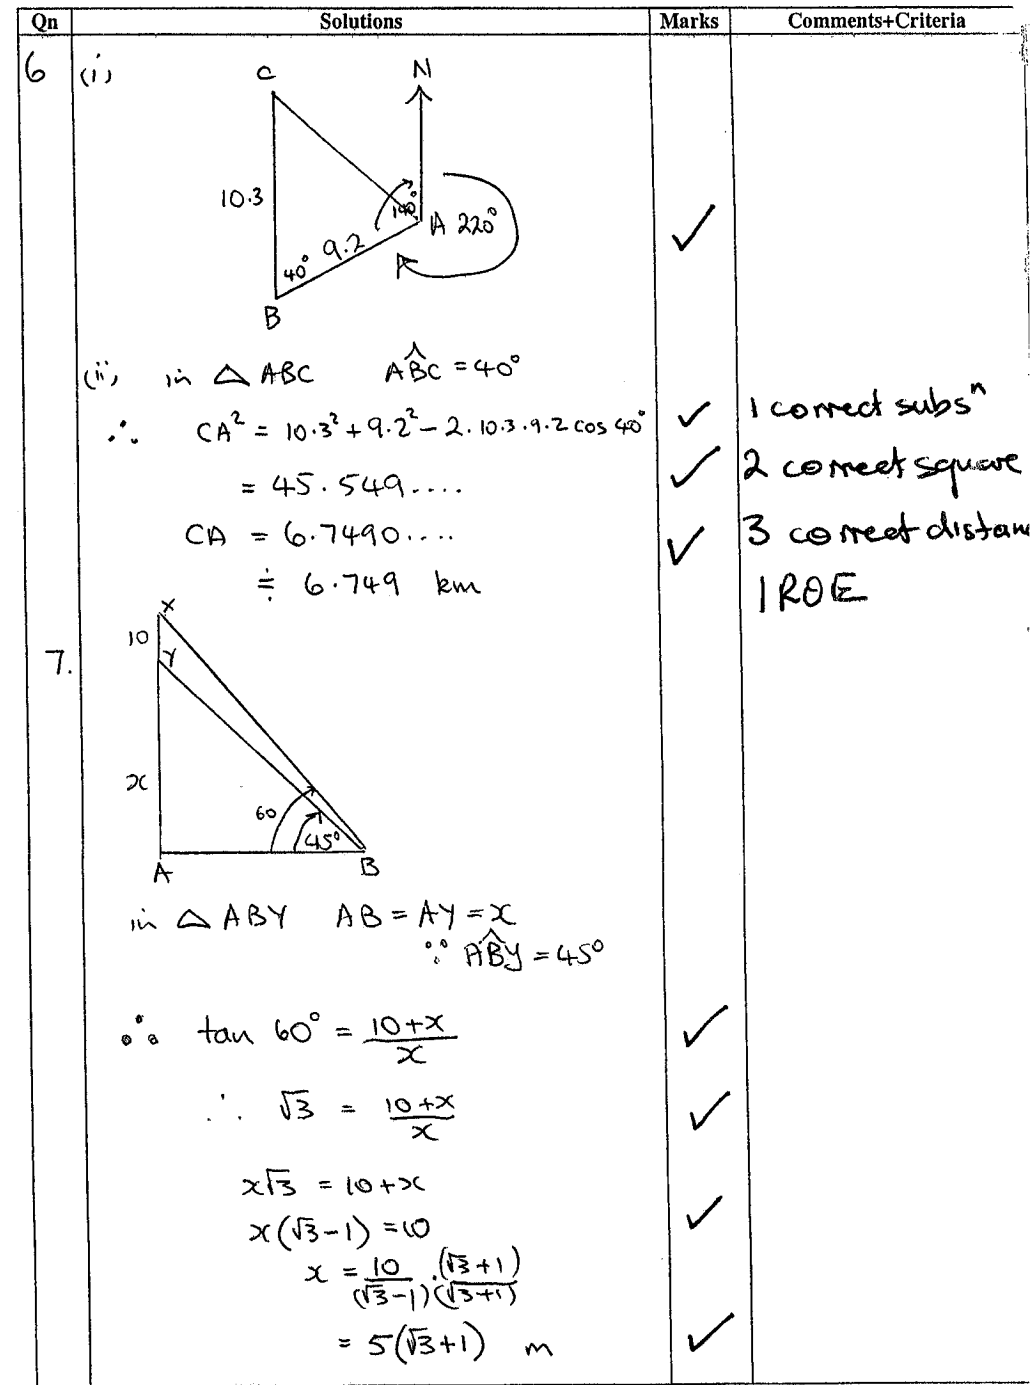 Qn Solutions Marks Comments+Criteria
6 (i)
C N
10.3 140° A 220°
40° 9.2
B
✓
(ii) in △ ABC AB̂C = 40°
∴ CA² = 10.3² + 9.2² − 2.10.3.9.2 cos 40° ✓ 1 correct subsⁿ
= 45.549.... ✓ 2 correct square
CA = 6.7490.... ✓ 3 correct distan
≑ 6.749 km 1 ROE
7.
X
10
Y
x
60 45°
A B
in △ ABY AB = AY = x
∵ AB̂Y = 45°
∴ tan 60° = (10+x)/x ✓
∴ √3 = (10+x)/x ✓
x√3 = 10+x
x(√3−1) = 10 ✓
x = 10/(√3−1) . (√3+1)/(√3+1)
= 5(√3+1) m ✓